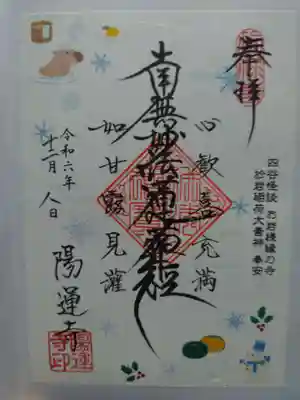 奉拝
四谷怪談 お岩様縁の寺
於岩稲荷大善神 奉安
心歓喜充満
南無妙法蓮華経
如甘露見灌
令和六年
十二月 八日
陽運寺
陽運寺印